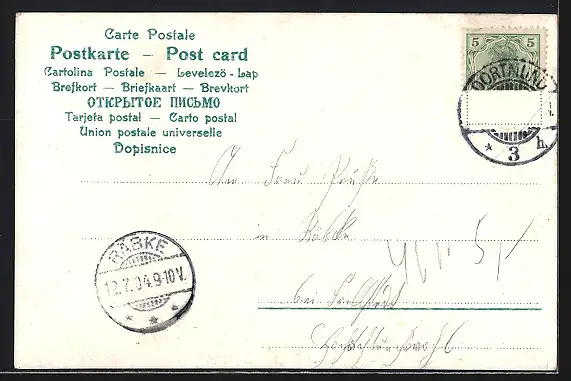 Carte Postale
Postkarte — Post card
Cartolina Postale — Levelezö-Lap
Brefkort — Briefkaart — Brevkort
ОТКРЫТОЕ ПИСЬМО
Tarjeta postal — Carto postal
Union postale universelle
Dopisnice
5 5
DORTMUND
* 3 h.
An Frau
in Räbke
bei
RÄBKE
12.7.04.9-10V.
* * *